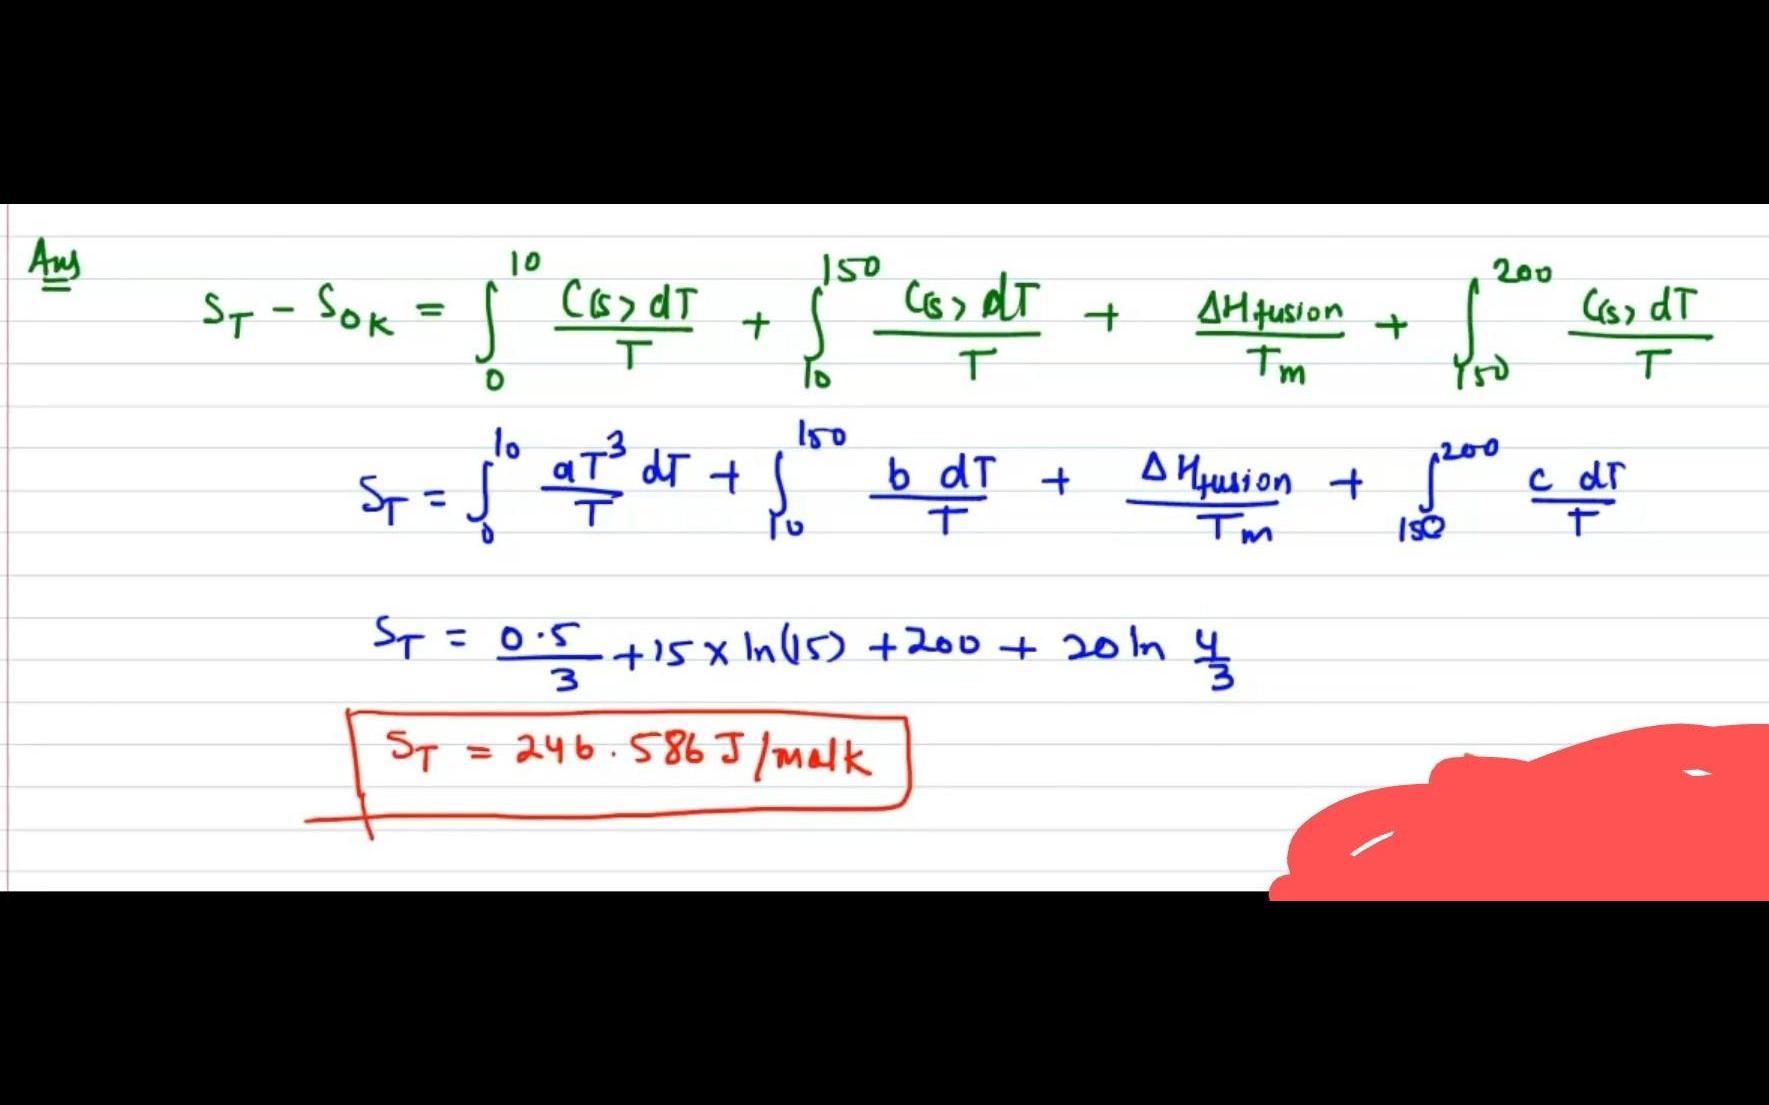 Ans
S_T - S_{0K} = ∫_0^{10} C(s) dT / T + ∫_{10}^{150} C(s) dT / T + ΔH fusion / T_m + ∫_{150}^{200} C(s) dT / T
S_T = ∫_0^{10} aT^3 dT / T + ∫_{10}^{150} b dT / T + ΔH fusion / T_m + ∫_{150}^{200} c dT / T
S_T = 0.5 / 3 + 15 × ln(15) + 200 + 20 ln 4/3
S_T = 246.586 J/molk